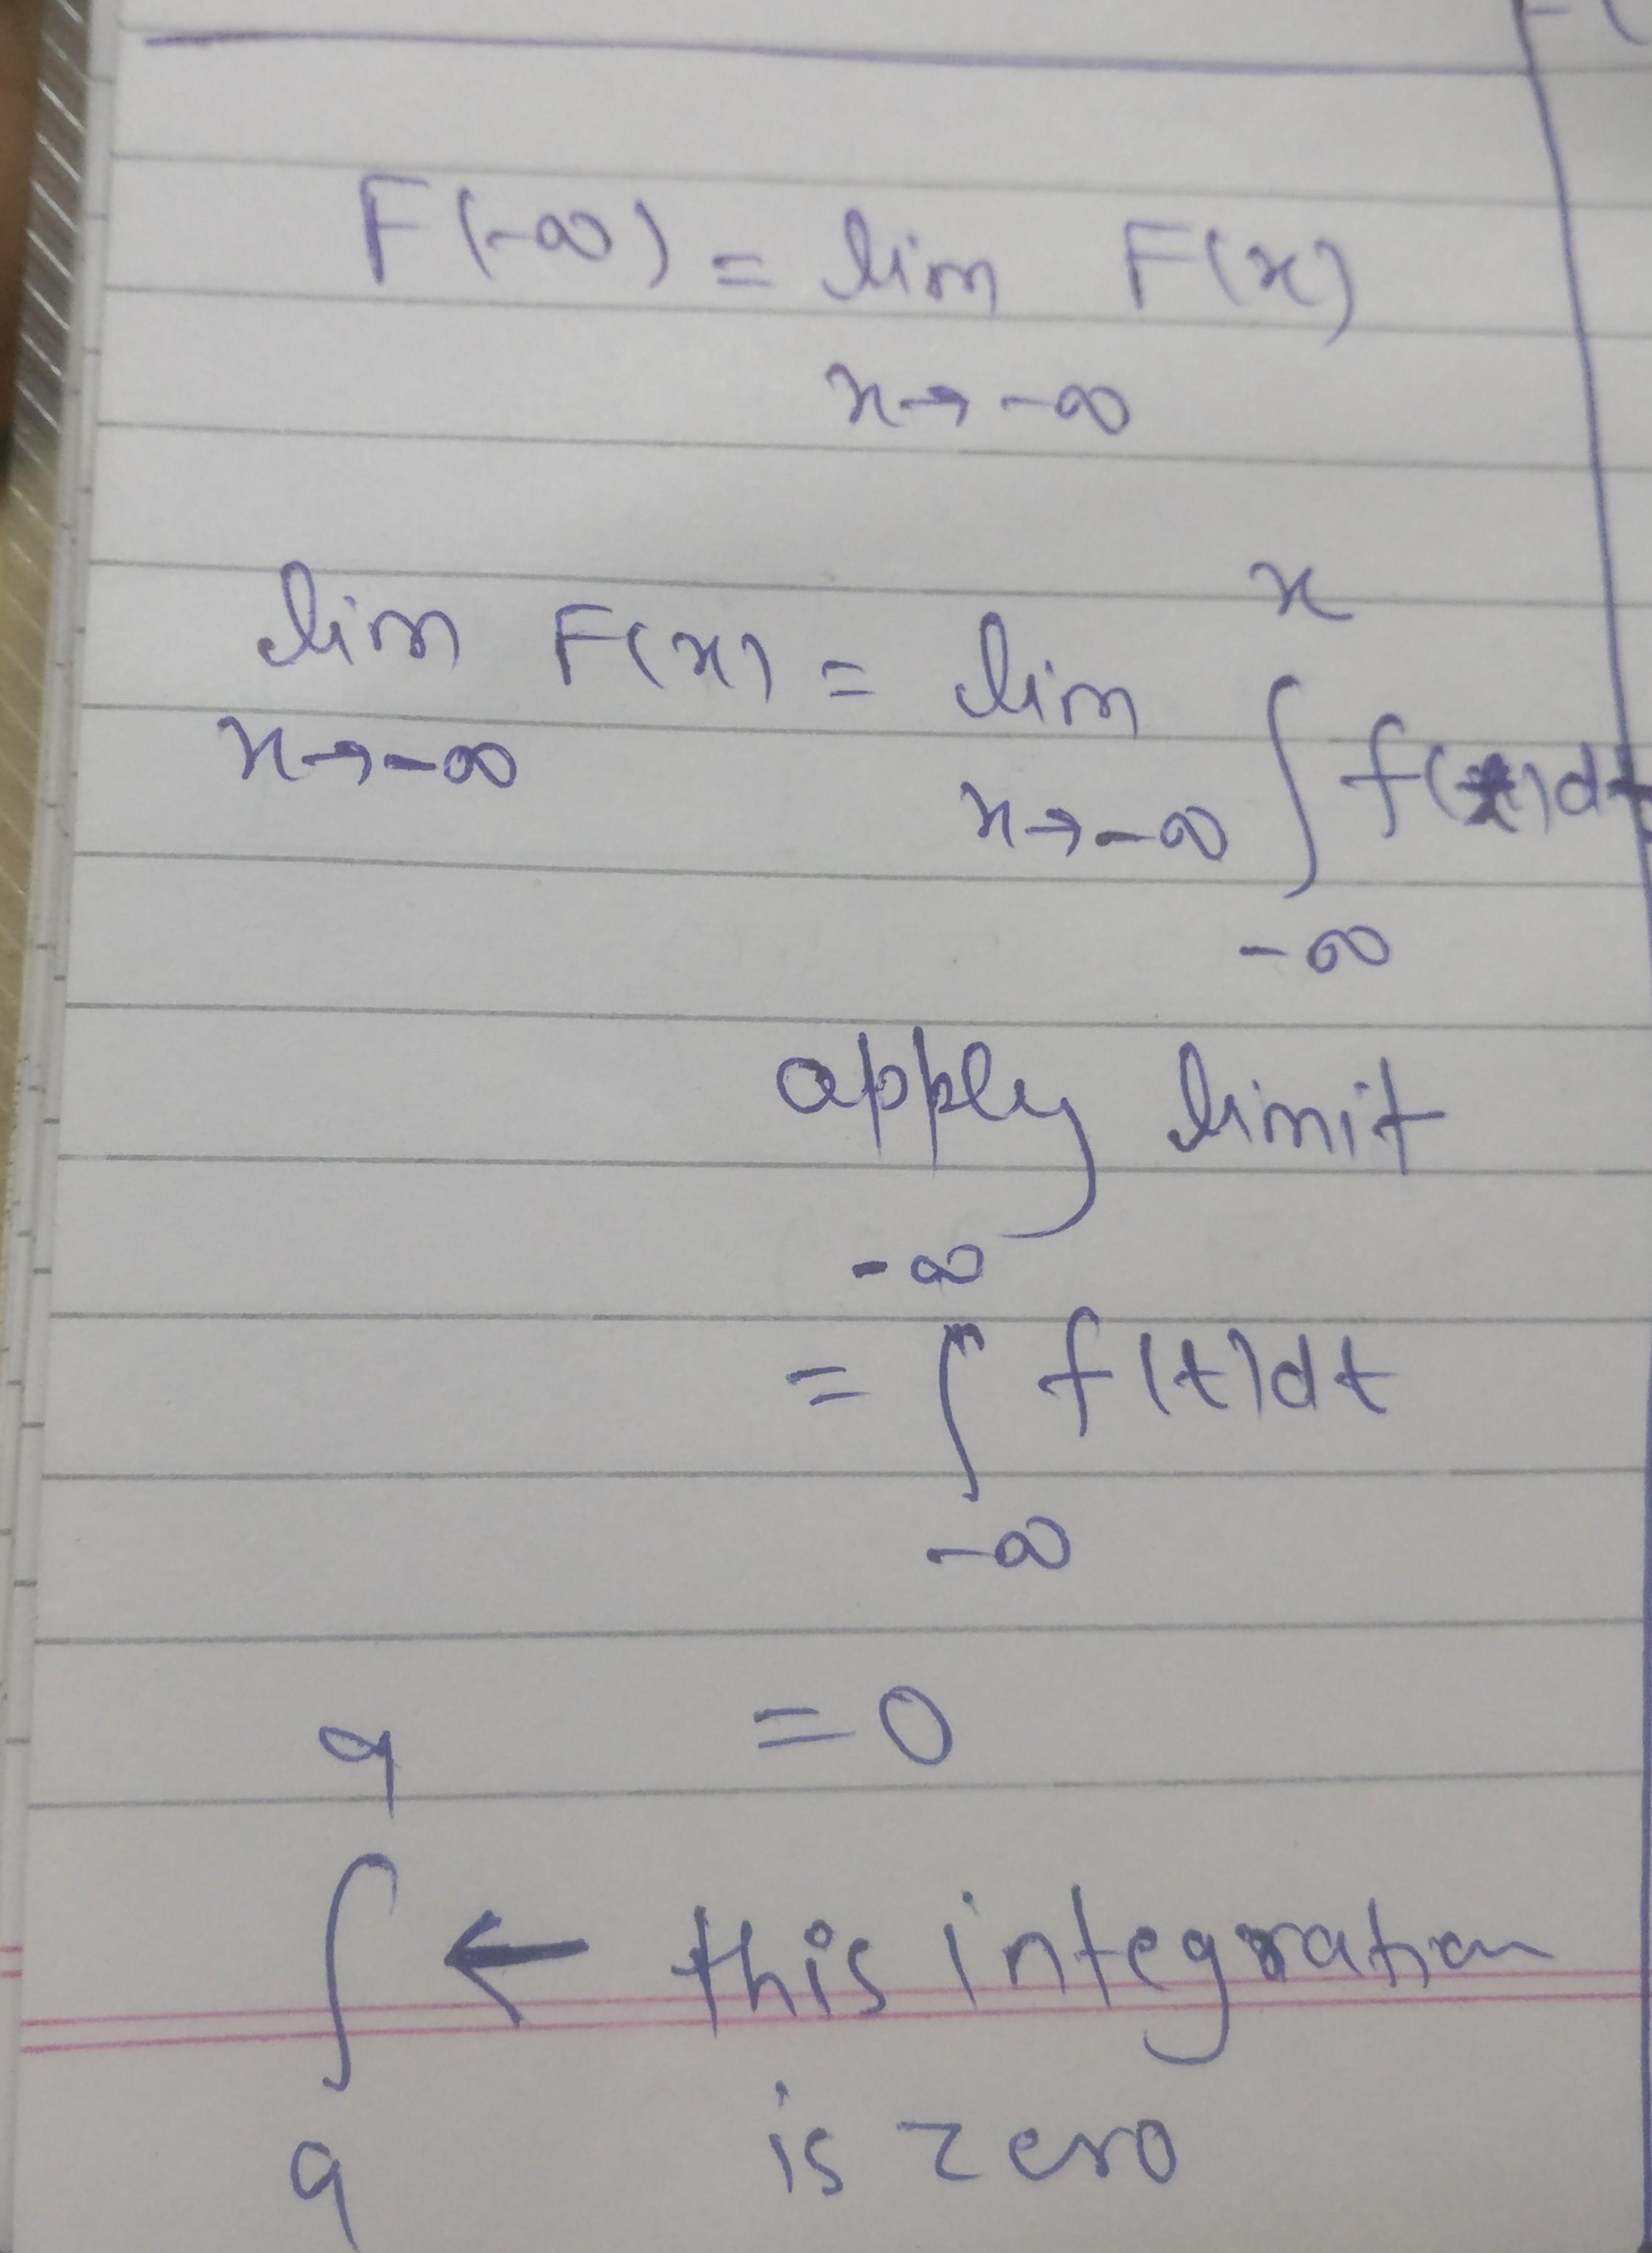 F(-∞) = lim F(x)
x→-∞
lim F(x) = lim ∫ f(t)dt
x→-∞ x→-∞
x
-∞
apply limit
-∞
= ∫ f(t)dt
-∞
= 0
a
∫ ← this integration
a is zero